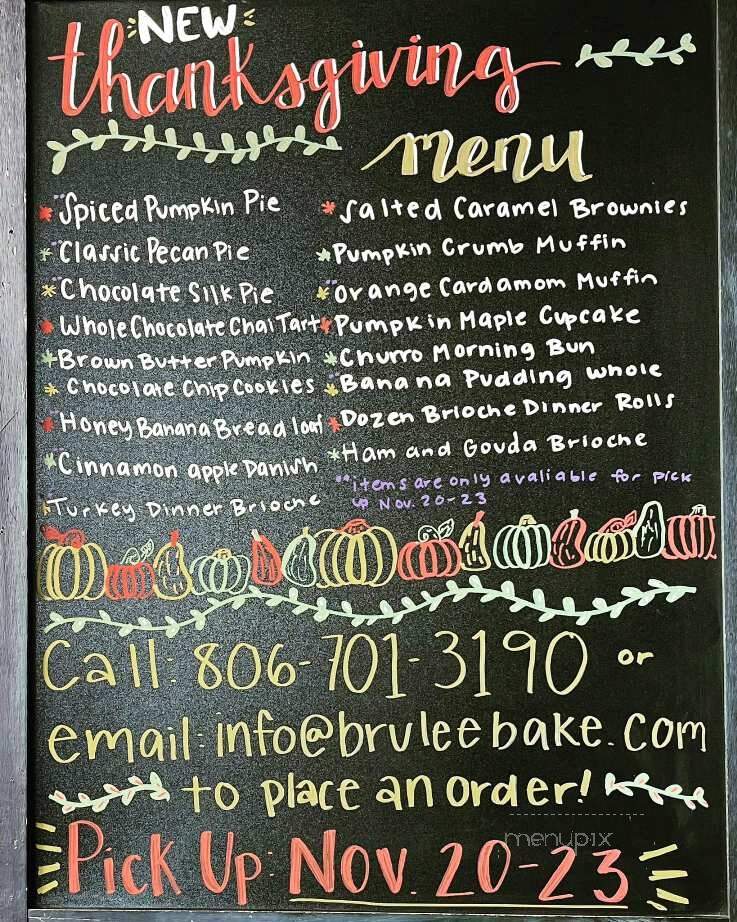 NEW
thanksgiving
menu
"Spiced Pumpkin Pie
"Classic Pecan Pie
"Chocolate Silk Pie
Whole Chocolate Chai Tart
Brown Butter Pumpkin
Chocolate Chip Cookies
Honey Banana Bread loaf
"Cinnamon apple Danish
Turkey Dinner Brioche
"Salted Caramel Brownies
"Pumpkin Crumb Muffin
"orange Cardamom Muffin
Pumpkin Maple Cupcake
Churro Morning Bun
"Banana Pudding whole
Dozen Brioche Dinner Rolls
Ham and Gouda Brioche
""items are only avaliable for pick
up Nov. 20-23
Call: 806-701-3190 or
email: info@bruleebake.com
to place an order!
menupix
Pick Up: Nov. 20-23